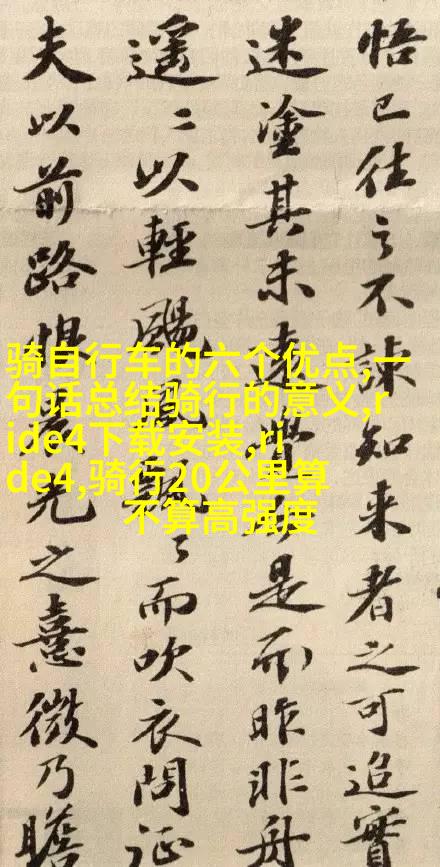 悟已往之不諫知來者之可追實
迷塗其未遠覺今是而昨非舟
遥〻以輕颺風飄〻而吹衣問征
夫以前路恨晨光之熹微乃瞻
骑自行车的六个优点,一
句话总结骑行的意义,r
ide4下载安装,ri
de4,骑行20公里算
不算高强度